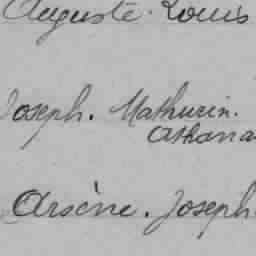 Auguste. Louis
Joseph. Mathurin.
Athana
Arsène. Joseph